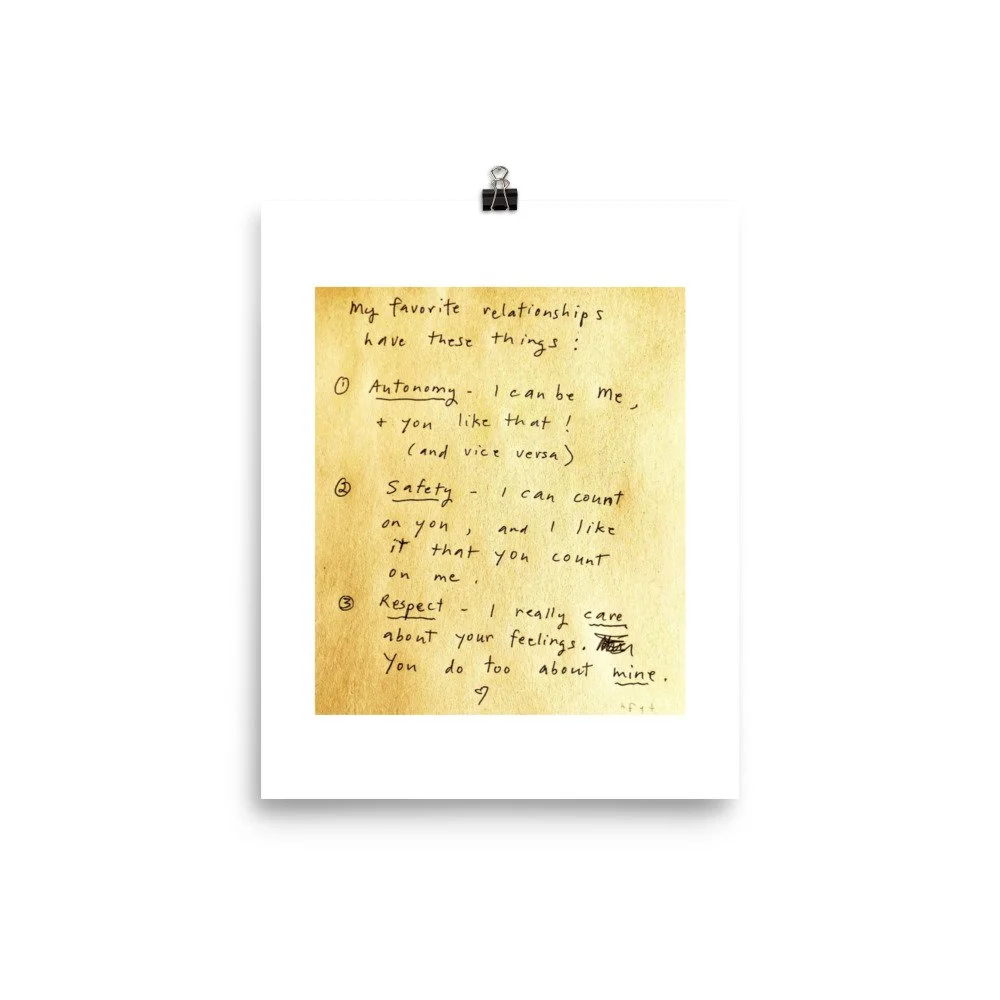 My favorite relationships
have these things :
① Autonomy - I can be me,
+ you like that !
(and vice versa)
② Safety - I can count
on you, and I like
it that you count
on me.
③ Respect - I really care
about your feelings.
You do too about mine.